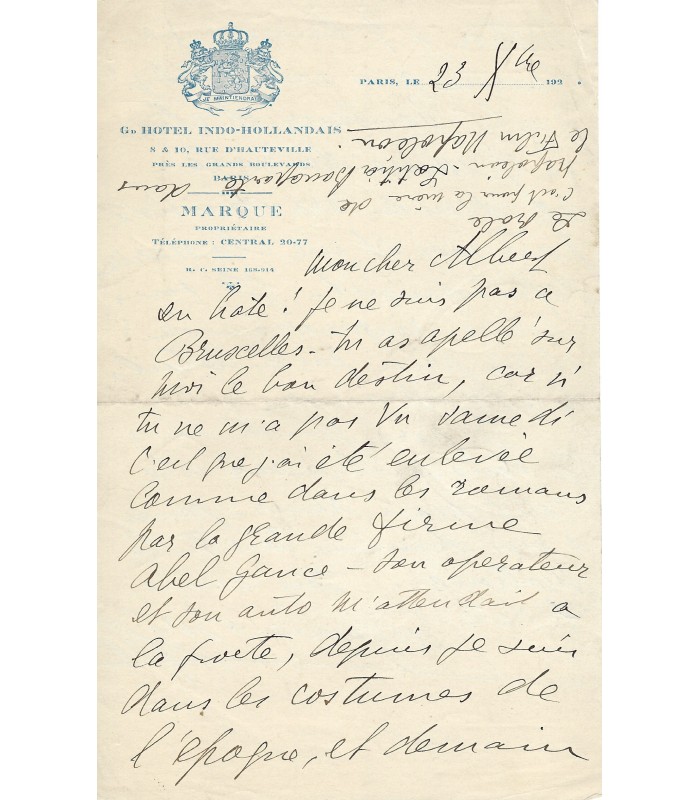 JE MAINTIENDRAI
Gd HOTEL INDO-HOLLANDAIS
8 & 10, RUE D'HAUTEVILLE
PRÈS LES GRANDS BOULEVARDS
PARIS
MARQUE
PROPRIÉTAIRE
TÉLÉPHONE : CENTRAL 20-77
R. C. SEINE 168-914
PARIS, LE 23 Xbre 192
Le role
c'est pour la mère de
Napoleon - Laetitia Bonaparte dans
le Film Napoléon.
Mon cher Albert
en hate ! Je ne suis pas a
Bruxelles - tu as apellé sur
moi le bon destin, car si
tu ne m'a pas vu samedi
c'est que j'ai été enlevée
comme dans les romans
par la grande firme
Abel Gance - son operateur
et son auto m'attendait a
la porte, depuis je suis
dans les costumes de
l'epoque, et demain